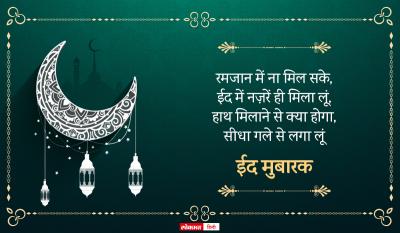 रमजान में ना मिल सके,
ईद में नज़रें ही मिला लूं,
हाथ मिलाने से क्या होगा,
सीधा गले से लगा लूं
ईद मुबारक
लोकमत हिन्दी